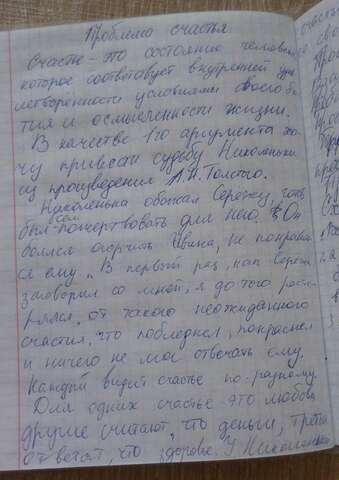 Проблема счастья
Счастье - это состояние человека,
которое соответствует внутренней удв
летворённости условиями своего бы
тия и осмысленности жизни.
В качестве 1го аргумента хо
чу привести судьбу Николеньки
из произведения Л.Н. Толстого.
Николенька обожал Серёжу, готов
был всем пожертвовать для него. Он
боялся огорчить Ивина, не понравит
ся ему. "В первый раз, как Серёжа
заговорил со мной, я до того расте
рялся от такого неожиданного
счастия, что побледнел, покраснел
и ничего не мог отвечать ему.
Каждый видит счастье по-разному
Для одних счастье - это любовь
другие считают, что деньги, третьи
ответят, что здоровье. У Николеньки